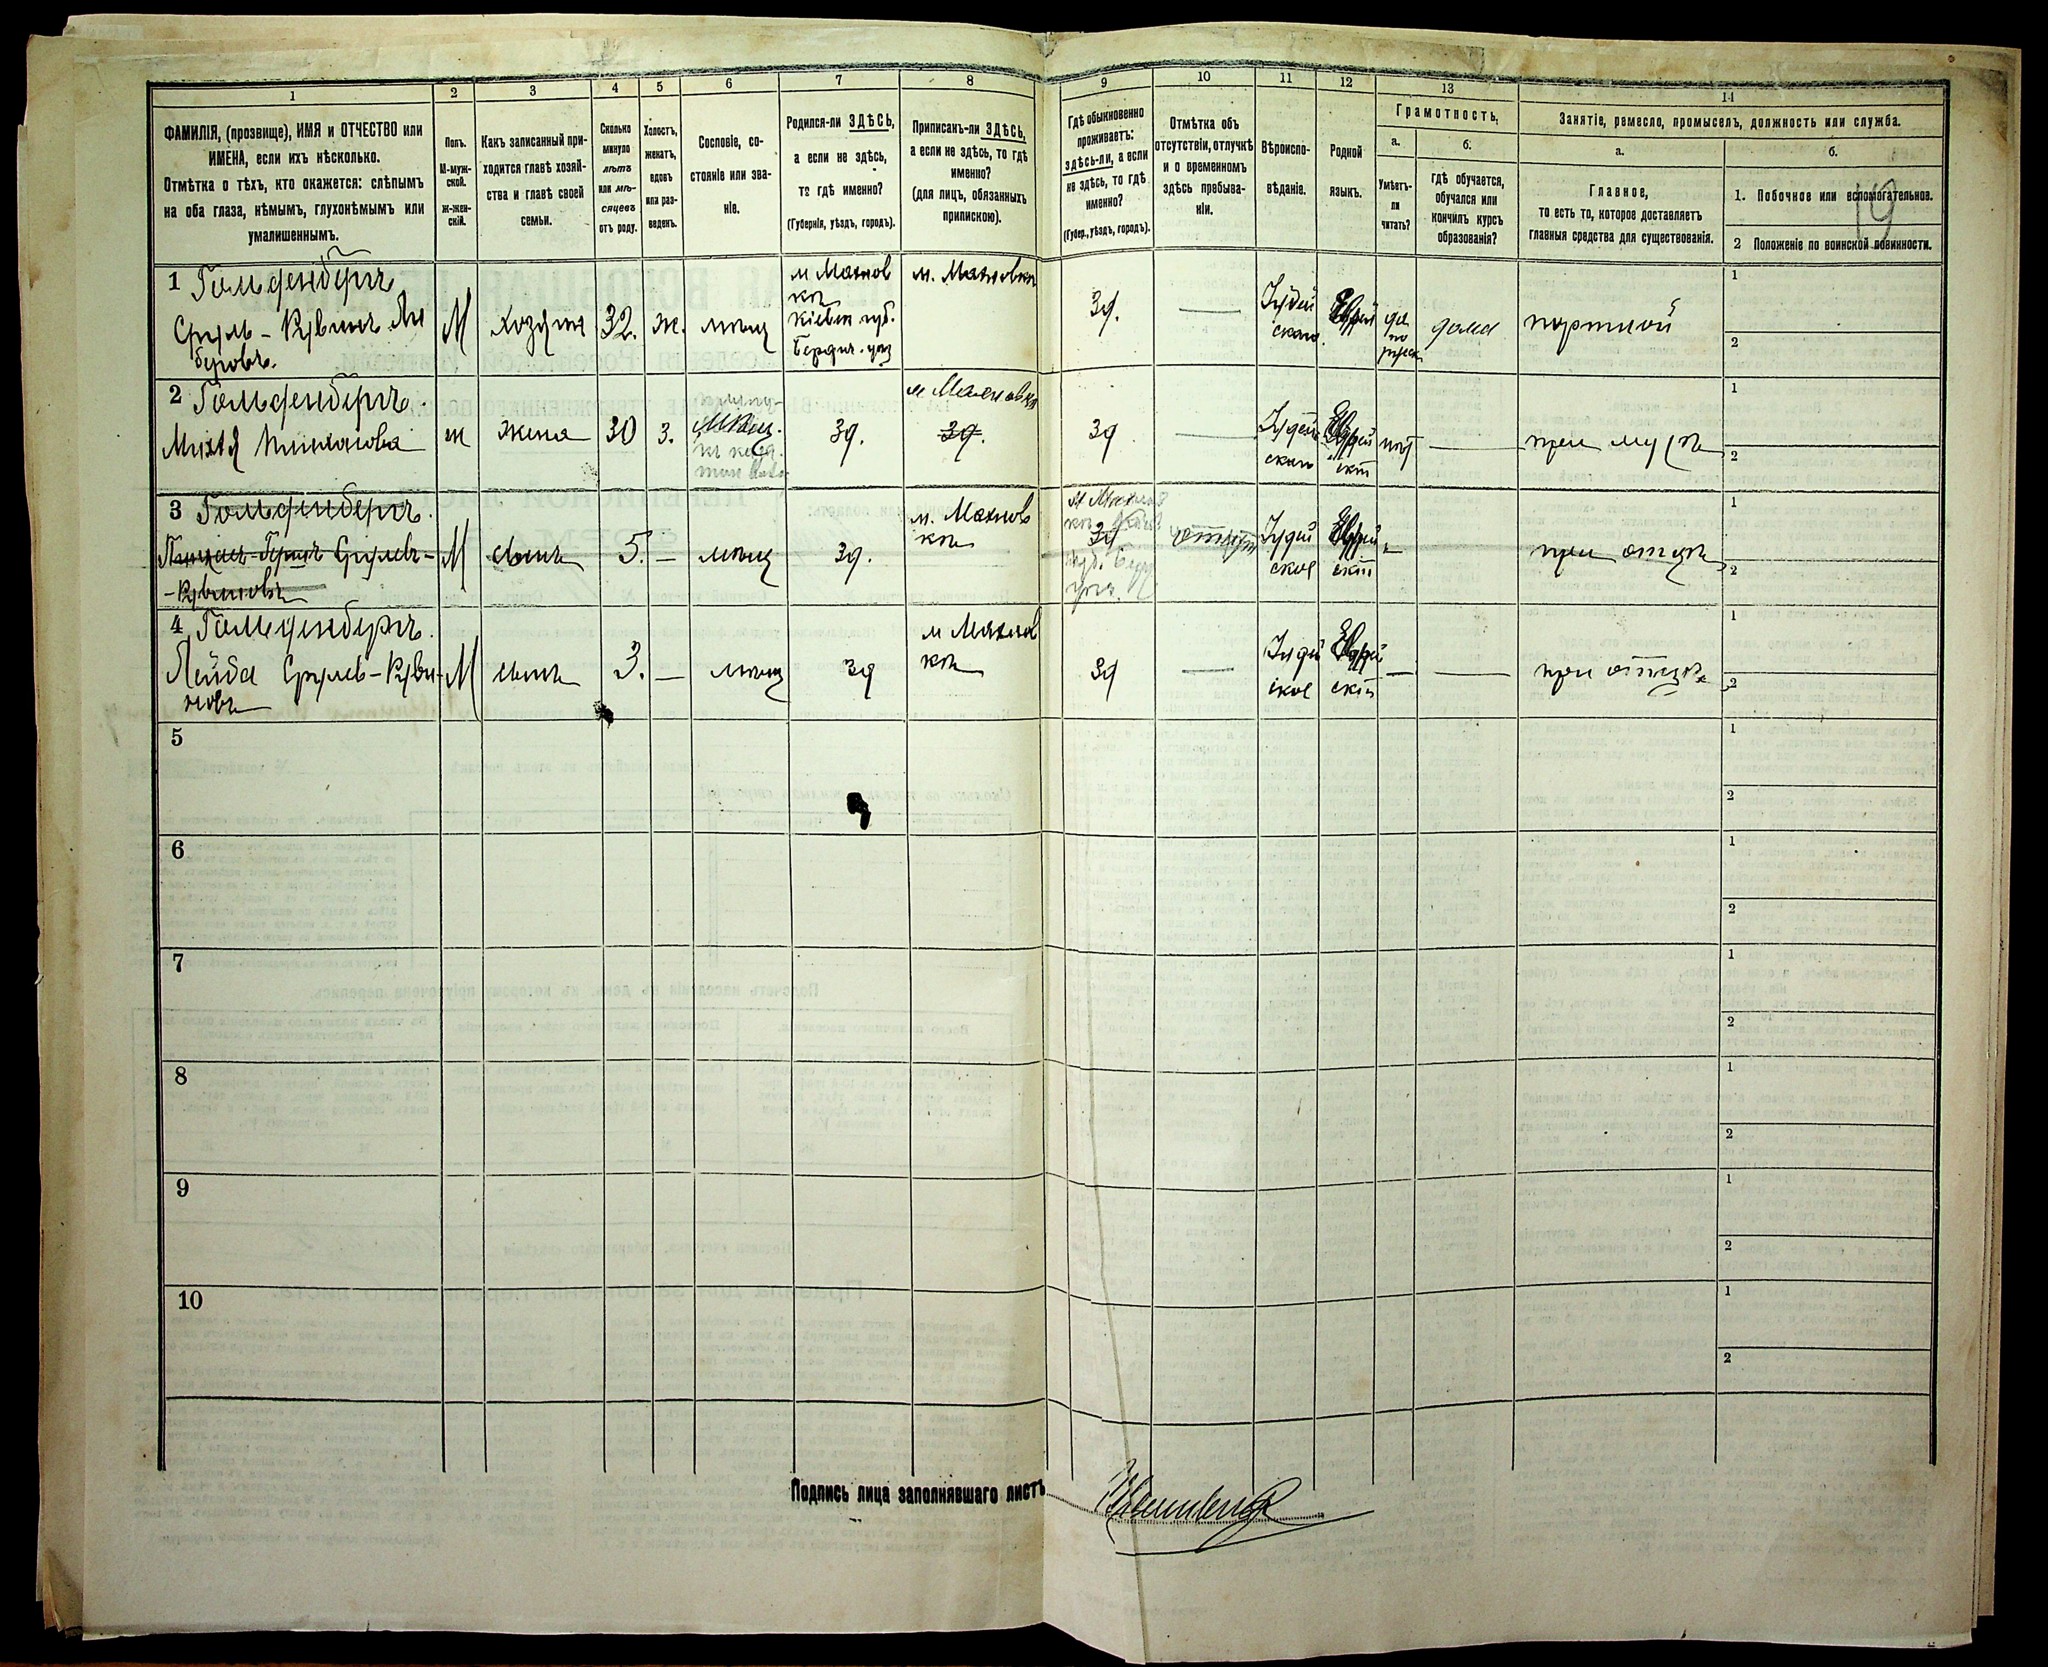 1
2
3
4
5
6
7
8
9
10
11
12
13
14
ФАМИЛІЯ, (прозвище), ИМЯ и ОТЧЕСТВО или
ИМЕНА, если ихъ нѣсколько.
Отмѣтка о тѣхъ, кто окажется: слѣпымъ
на оба глаза, нѣмымъ, глухонѣмымъ или
умалишеннымъ.
Полъ.
М-муж-
ской.
Ж-жен-
скій.
Какъ записанный при-
ходится главѣ хозяй-
ства и главѣ своей
семьи.
Сколько
минуло
лѣтъ
или мѣ-
сяцевъ
отъ роду.
Холостъ,
женатъ,
вдовъ
или раз-
веденъ.
Сословіе, со-
стояніе или зва-
ніе.
Родился-ли ЗДѢСЬ,
а если не здѣсь,
то гдѣ именно?
(Губернія, уѣздъ, городъ).
Приписанъ-ли ЗДѢСЬ,
а если не здѣсь, то гдѣ
именно?
(для лицъ, обязанныхъ
припискою).
Гдѣ обыкновенно
проживаетъ:
здѣсь-ли, а если
не здѣсь, то гдѣ
именно?
(Губер., уѣздъ, городъ).
Отмѣтка объ
отсутствіи, отлучкѣ
и о временномъ
здѣсь пребыва-
ніи.
Вѣроиспо-
вѣданіе.
Родной
языкъ.
Грамотность.
а.
Умѣетъ-
ли
читать?
б.
гдѣ обучается,
обучался или
кончилъ курсъ
образованія?
Занятіе, ремесло, промыселъ, должность или служба.
а.
Главное,
то есть то, которое доставляетъ
главныя средства для существованія.
б.
1. Побочное или вспомогательное.
2 Положеніе по воинской повинности.
19
1 Гольденбергъ
Сруль-Кувинъ
М
хозяинъ
32.
ж.
мѣщ
м Махнов
ка
Кіевск. губ.
Бердич. уѣз
м. Махновка
Зд.
—
Іудей
скаго.
Еврей
да
по
русск
дома
портной
1
2
2 Гольденбергъ.
ж
жена
30
з.
зд.
м Махновка
зд.
зд
—
Іудей
скаго
Еврей
скій
нѣт
—
при мужѣ
1
2
3 Гольденбергъ.
Пинхасъ-Герш Срулевъ-
-Кувиновъ
М
сынъ
5.
—
мѣщ
зд.
м. Махнов
ка
зд
Іудей
ское
Еврей
скій
—
при отцѣ
1
2
4 Гольденбергъ.
Лейба Срулев-Куви-
новъ
М
сынъ
3.
—
мѣщ
зд
м Махнов
ка
зд
—
Іудей
ское
Еврей
скій
—
—
при отцѣ
1
2
5
1
2
6
1
2
7
1
2
8
1
2
9
1
2
10
1
2
Подпись лица заполнявшаго листъ